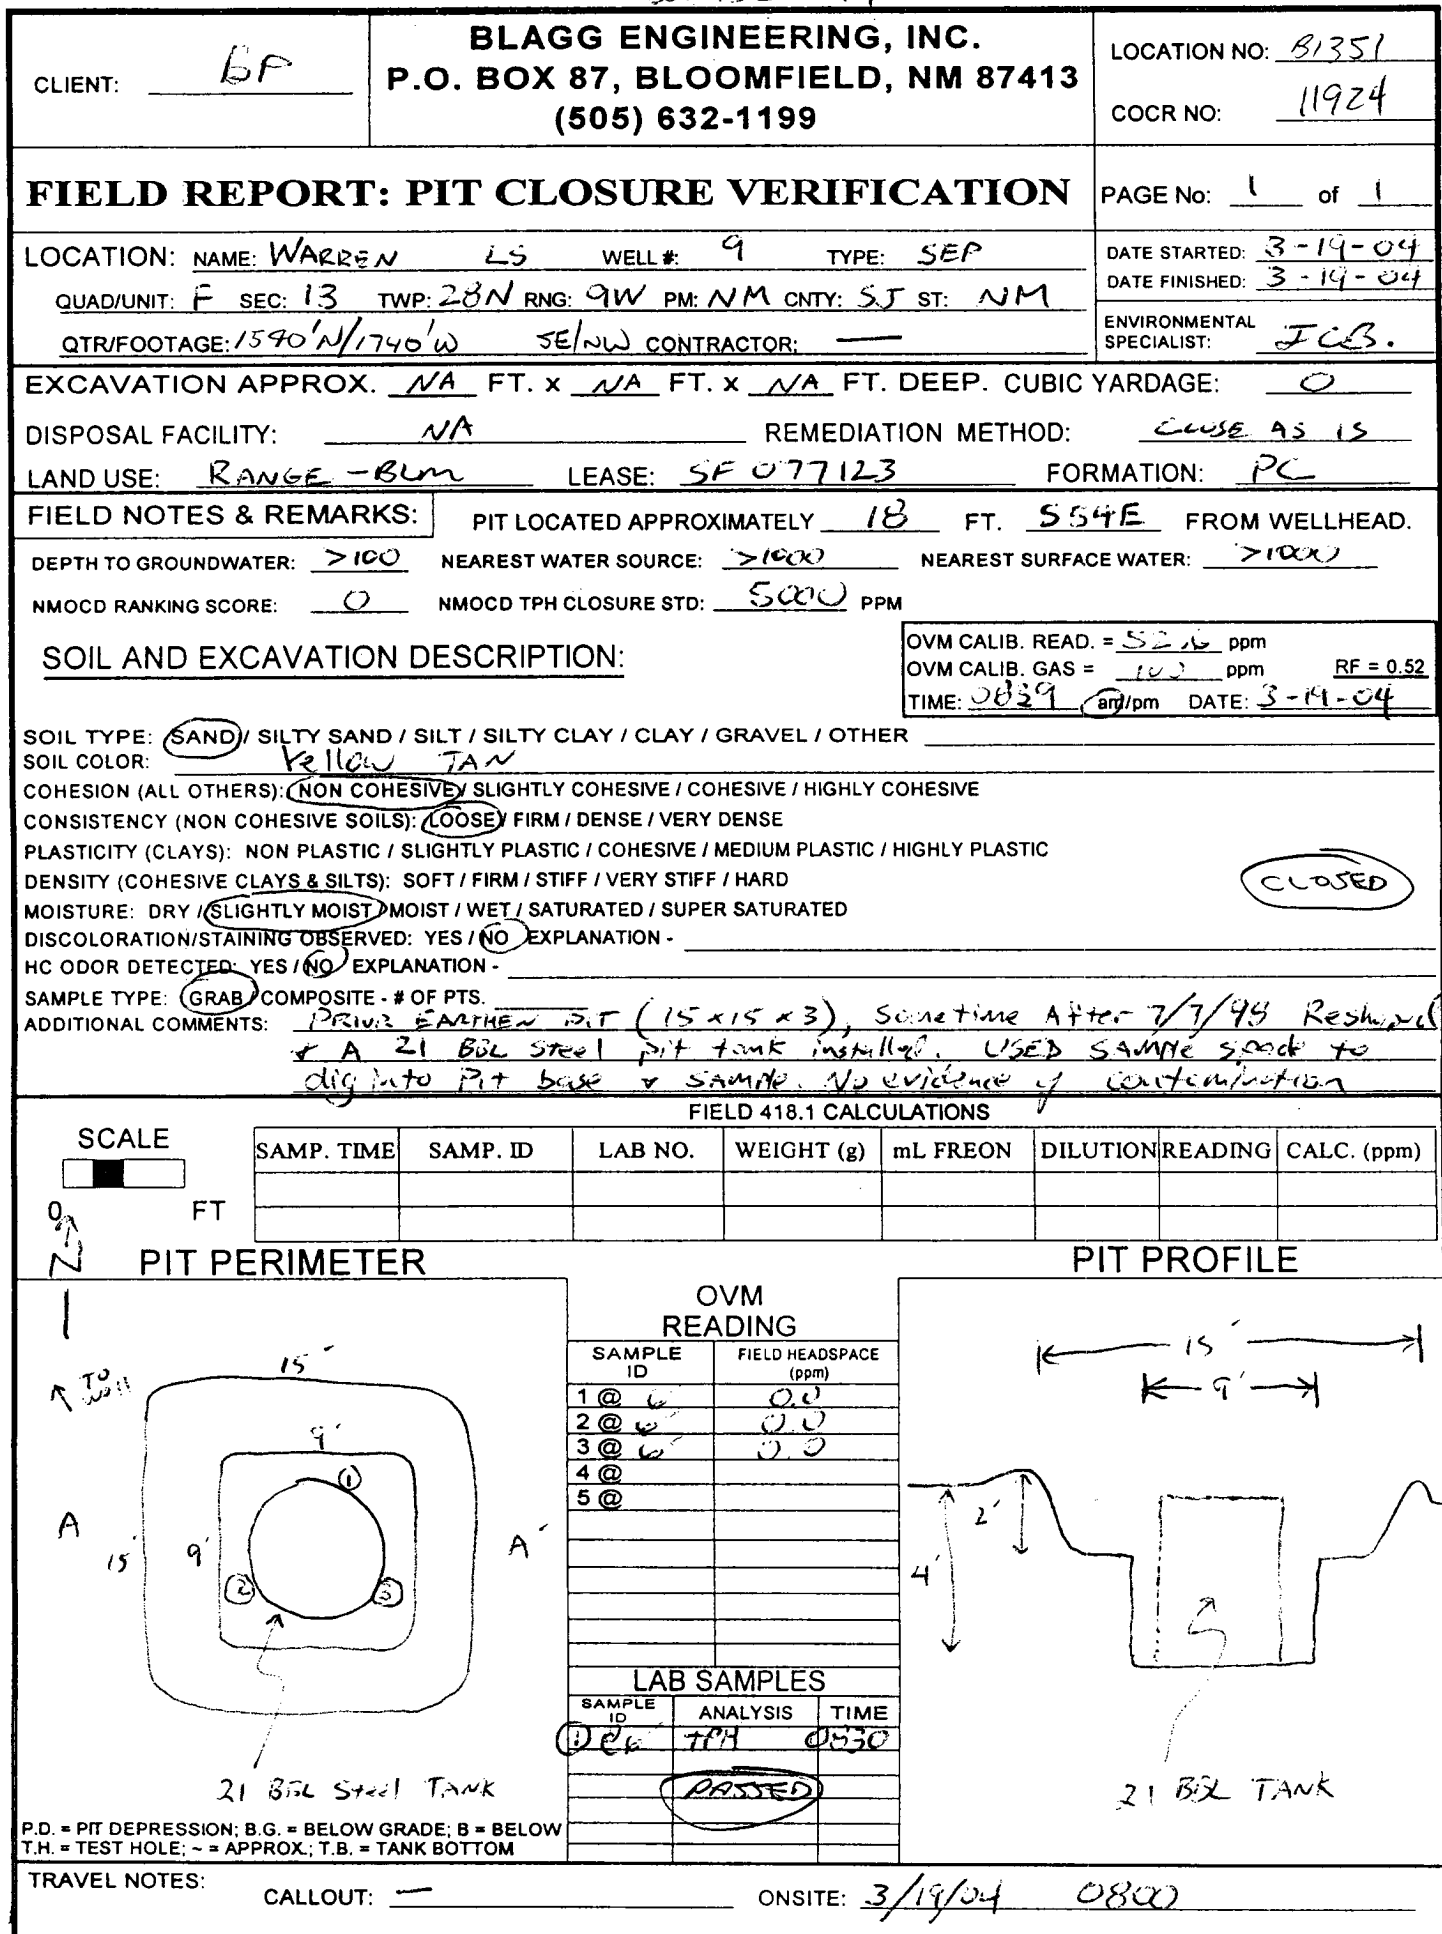 CLIENT: BP
BLAGG ENGINEERING, INC.
P.O. BOX 87, BLOOMFIELD, NM 87413
(505) 632-1199
LOCATION NO: B1351
COCR NO: 11924
FIELD REPORT: PIT CLOSURE VERIFICATION
PAGE No: 1 of 1
LOCATION: NAME: WARREN LS WELL #: 9 TYPE: SEP
QUAD/UNIT: F SEC: 13 TWP: 28N RNG: 9W PM: NM CNTY: SJ ST: NM
QTR/FOOTAGE: 1590'N/1740'W SE/NW CONTRACTOR: —
DATE STARTED: 3-19-04
DATE FINISHED: 3-19-04
ENVIRONMENTAL
SPECIALIST: JCB.
EXCAVATION APPROX. NA FT. x NA FT. x NA FT. DEEP. CUBIC YARDAGE: 0
DISPOSAL FACILITY: NA REMEDIATION METHOD: CLOSE AS IS
LAND USE: RANGE - BLM LEASE: SF 077123 FORMATION: PC
FIELD NOTES & REMARKS: PIT LOCATED APPROXIMATELY 18 FT. S54E FROM WELLHEAD.
DEPTH TO GROUNDWATER: >100 NEAREST WATER SOURCE: >1000 NEAREST SURFACE WATER: >1000
NMOCD RANKING SCORE: 0 NMOCD TPH CLOSURE STD: 5000 PPM
SOIL AND EXCAVATION DESCRIPTION:
OVM CALIB. READ. = 52.6 ppm
OVM CALIB. GAS = 100 ppm RF = 0.52
TIME: 0839 am/pm DATE: 3-19-04
SOIL TYPE: SAND / SILTY SAND / SILT / SILTY CLAY / CLAY / GRAVEL / OTHER
SOIL COLOR: Yellow TAN
COHESION (ALL OTHERS): NON COHESIVE / SLIGHTLY COHESIVE / COHESIVE / HIGHLY COHESIVE
CONSISTENCY (NON COHESIVE SOILS): LOOSE / FIRM / DENSE / VERY DENSE
PLASTICITY (CLAYS): NON PLASTIC / SLIGHTLY PLASTIC / COHESIVE / MEDIUM PLASTIC / HIGHLY PLASTIC
DENSITY (COHESIVE CLAYS & SILTS): SOFT / FIRM / STIFF / VERY STIFF / HARD
CLOSED
MOISTURE: DRY / SLIGHTLY MOIST / MOIST / WET / SATURATED / SUPER SATURATED
DISCOLORATION/STAINING OBSERVED: YES / NO EXPLANATION -
HC ODOR DETECTED: YES / NO EXPLANATION -
SAMPLE TYPE: GRAB / COMPOSITE - # OF PTS.
ADDITIONAL COMMENTS: PRIOR EARTHEN PIT (15 x 15 x 3), Sometime After 7/7/98 Reshaped
& A 21 BBL Steel pit tank installed. USED SAMPLE spade to
dig into Pit base & SAMPLE. No evidence of contamination
FIELD 418.1 CALCULATIONS
SCALE
0 FT
SAMP. TIME SAMP. ID LAB NO. WEIGHT (g) mL FREON DILUTION READING CALC. (ppm)
N
PIT PERIMETER
PIT PROFILE
OVM
READING
SAMPLE ID FIELD HEADSPACE (ppm)
1 @ 6' 0.0
2 @ 6' 0.0
3 @ 6' 0.0
4 @
5 @
TO Well
15'
9'
1
A 15' 9' A'
2 3
21 BBL Steel TANK
15'
9'
2'
4'
21 BBL TANK
LAB SAMPLES
SAMPLE ID ANALYSIS TIME
1 @ 6' TPH 0830
PASSED
P.D. = PIT DEPRESSION; B.G. = BELOW GRADE; B = BELOW
T.H. = TEST HOLE; ~ = APPROX.; T.B. = TANK BOTTOM
TRAVEL NOTES: CALLOUT: — ONSITE: 3/19/04 0800